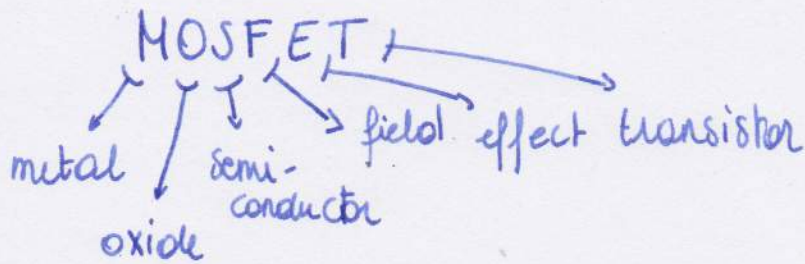 MOSFET
metal
oxide
semi-
conductor
field effect transistor